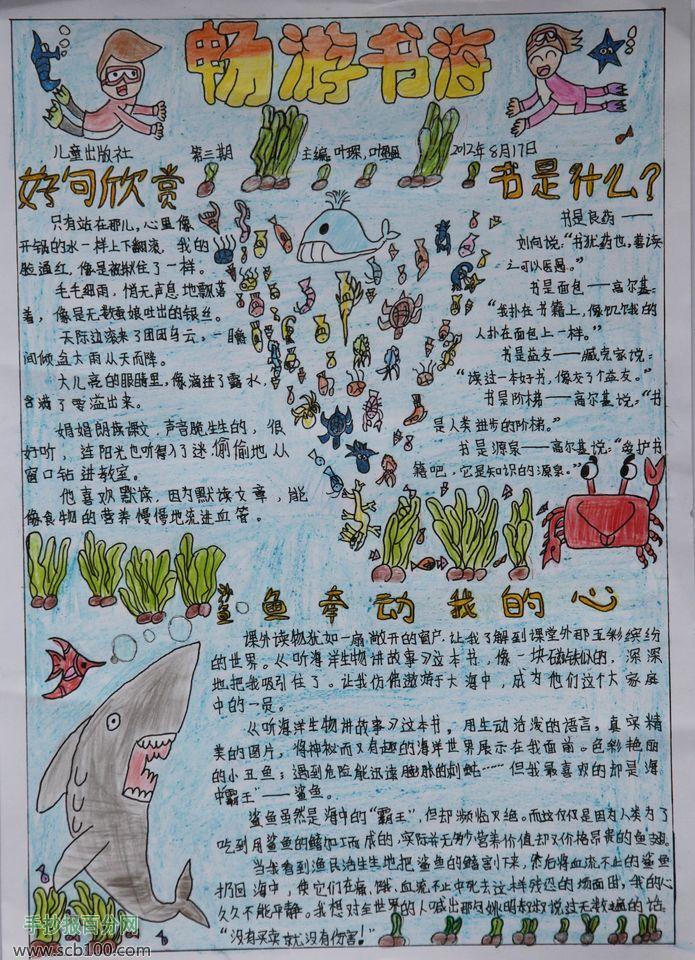 畅游书海
儿童出版社 第三期 主编:叶琛,叶 2012年8月17日
好句欣赏
只有站在那儿,心里像
开锅的水一样上下翻滚,我的
脸通红,像是被揪住了一样。
毛毛细雨,悄无声息地飘落
着,像是无数蚕娘吐出的银丝。
天际边滚来了团团乌云,一瞬
间倾盆大雨从天而降。
大儿亮的眼睛里,像滴进了露水,
含满了 溢出来。
娟娟朗读课文,声音脆生生的,很
好听,连阳光也听得入了迷偷偷地从
窗口钻进教室。
他喜欢默读,因为默读文章,能
像食物的营养慢慢地流进血管。
书是什么?
书是良药——
刘向说:“书犹药也,善读
之可以医愚。”
书是面包——高尔基:
“我扑在书籍上,像饥饿的
人扑在面包上一样。”
书是益友——臧克家说:
“读过一本好书,像交了个益友。”
书是阶梯——高尔基说:“书
是人类进步的阶梯。”
书是源泉——高尔基说:“爱护书
籍吧,它是知识的源泉。”
鲨鱼牵动我的心
课外读物犹如一扇敞开的窗户,让我了解到课堂外那五彩缤纷
的世界。《听海洋生物讲故事》这本书,像一块磁铁似的,深深
地把我吸引住了。让我仿佛遨游于大海中,成为他们这个大家庭
中的一员。
《听海洋生物讲故事》这本书,用生动活泼的语言,真实精
美的图片,将神秘而又有趣的海洋世界展示在我面前。色彩艳丽
的小丑鱼;遇到危险能迅速膨胀的刺鲀……但我最喜欢的却是海
中“霸王”——鲨鱼。
鲨鱼虽然是海中的“霸王”,但却濒临灭绝。而这仅仅是因为人类为了
吃到用鲨鱼的鳍加工而成的,实际并无多少营养价值却又价格昂贵的鱼翅。
当我看到渔民活生生地把鲨鱼的鳍割下来,然后将血流不止的鲨鱼
扔回海中,使它们在痛、饿、血流不止中死去这样残忍的场面时,我的心
久久不能平静。我想对全世界的人喊出那句姚明叔叔说过无数遍的话:
“没有买卖就没有伤害!”
手抄报百分网
www.scb100.com